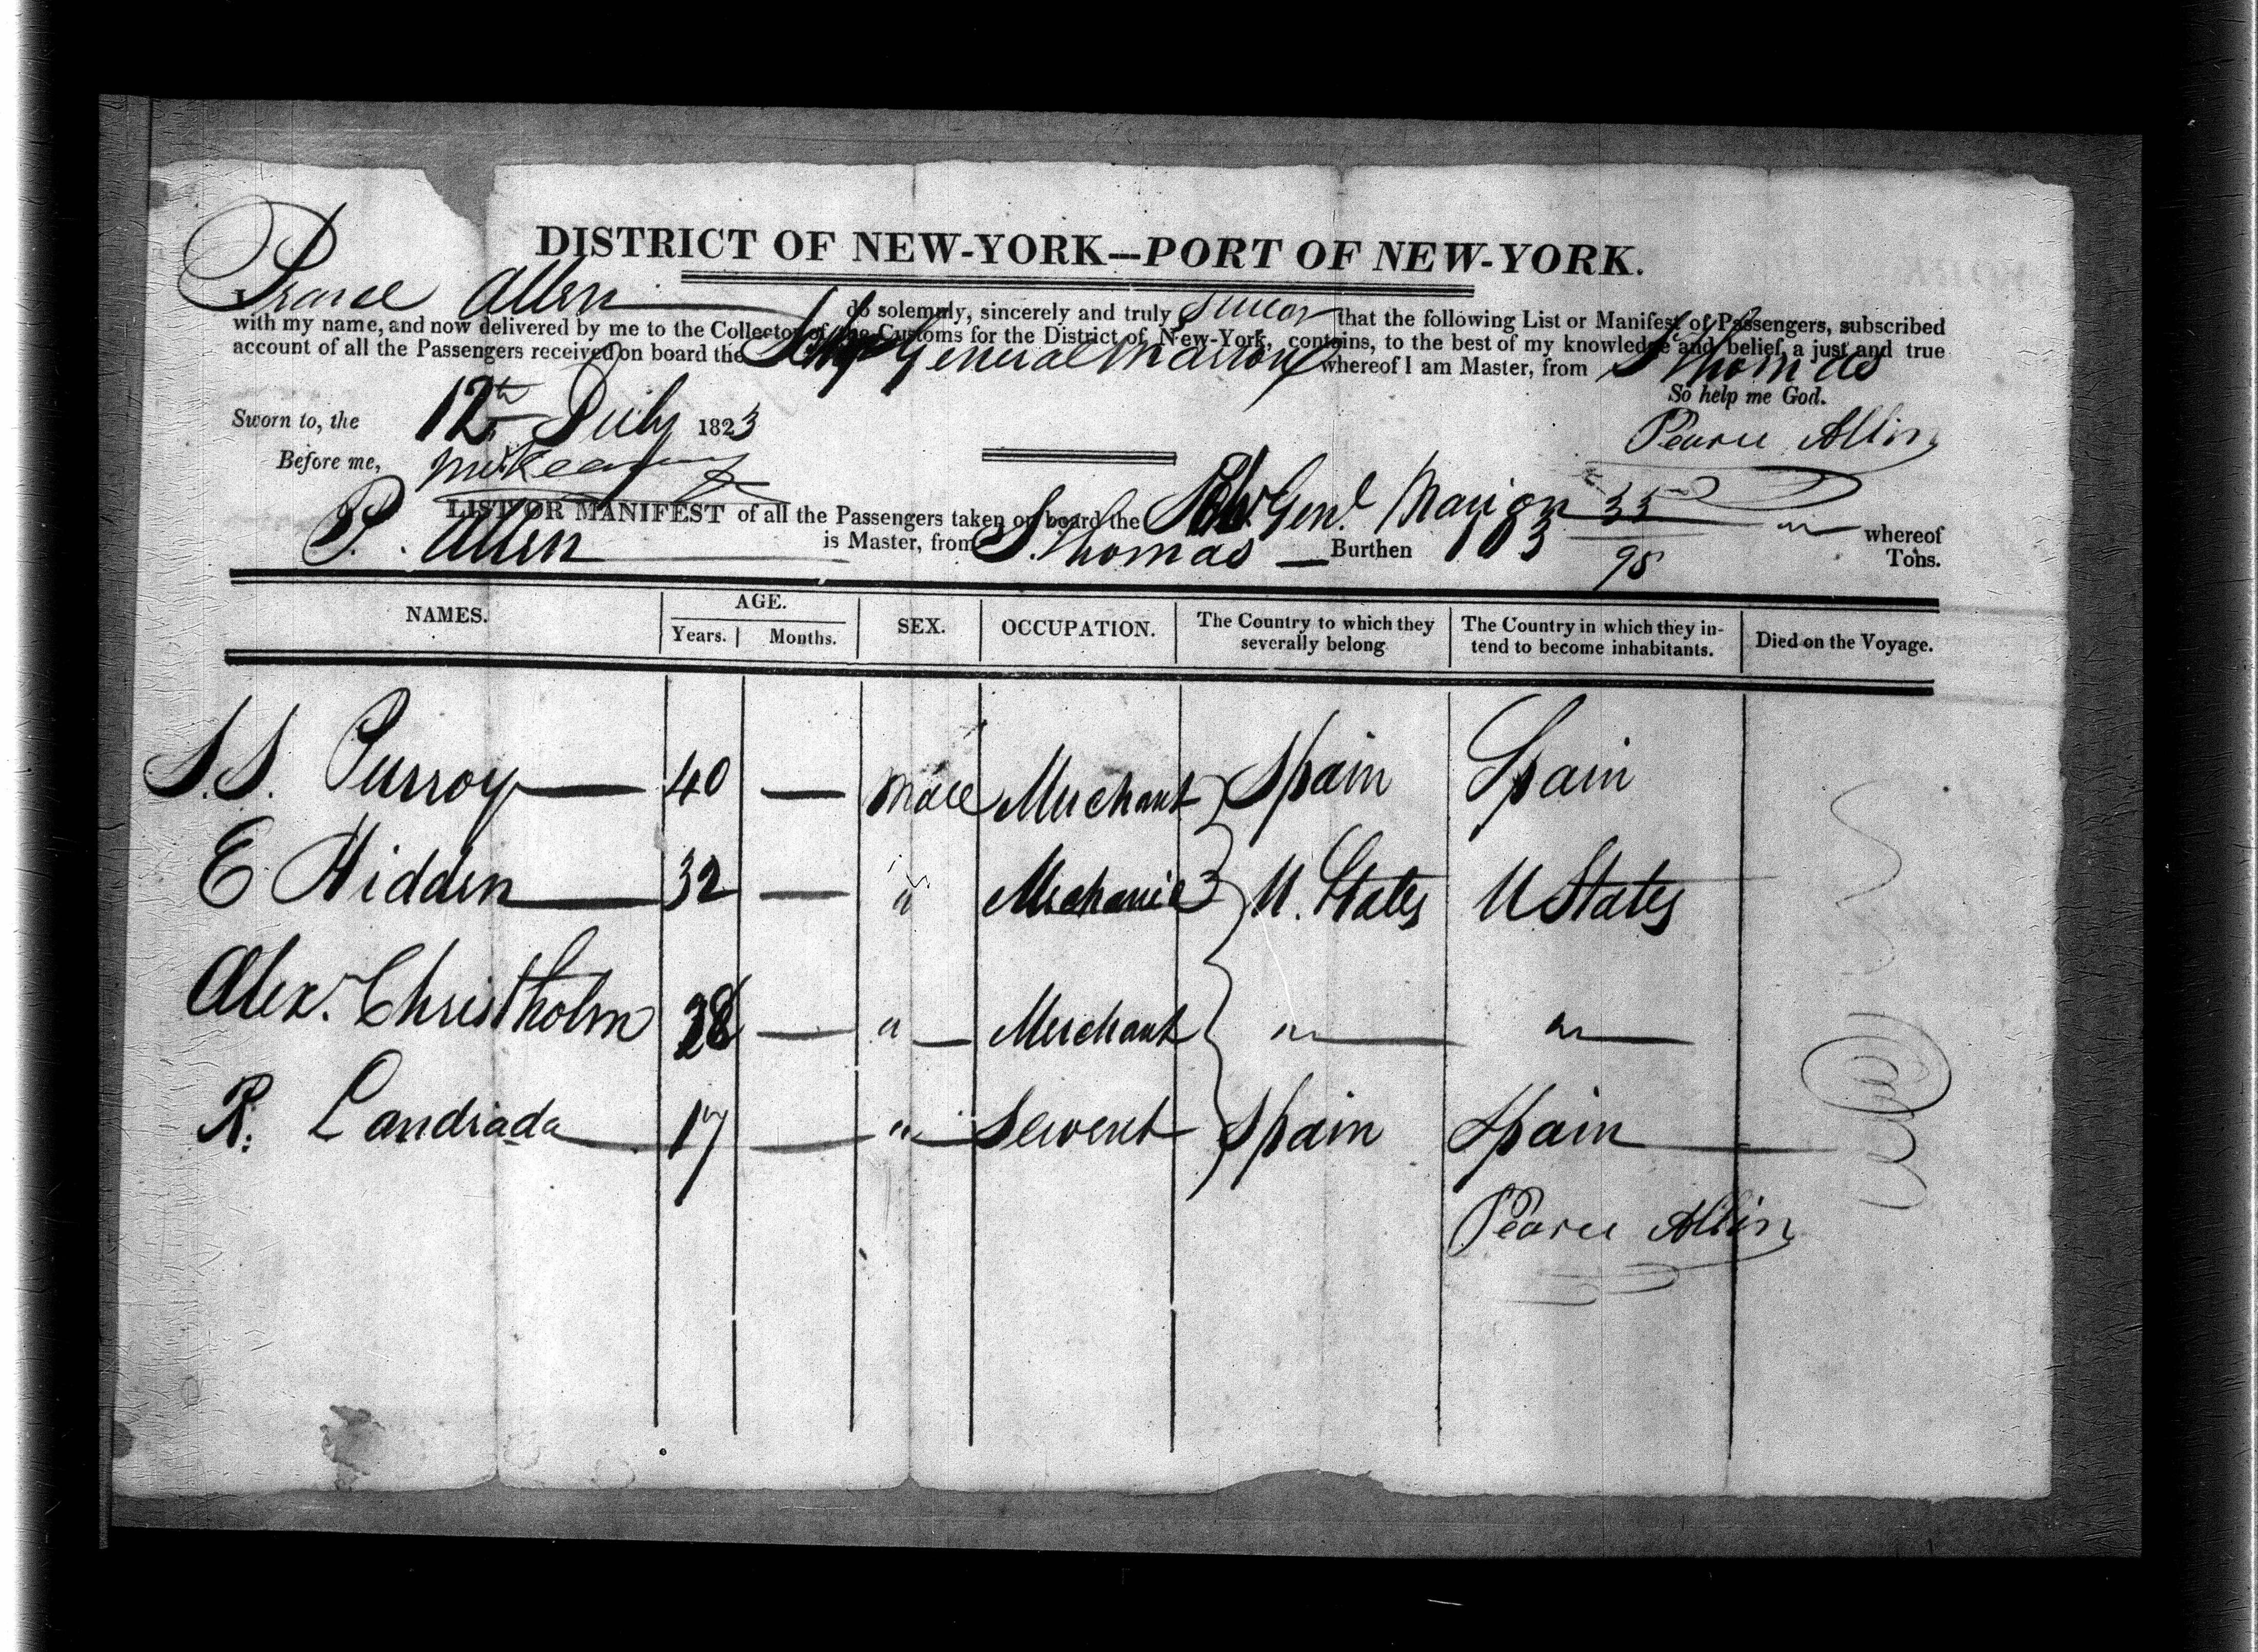 DISTRICT OF NEW-YORK—PORT OF NEW-YORK.
Pearce Allen do solemnly, sincerely and truly Swear that the following List or Manifest of Passengers, subscribed
with my name, and now delivered by me to the Collector of the Customs for the District of New-York, contains, to the best of my knowledge and belief, a just and true
account of all the Passengers received on board the Schr General Marion whereof I am Master, from St Thomas
So help me God.
Sworn to, the 12th July 1823
Pearce Allin
Before me,
LIST OR MANIFEST of all the Passengers taken on board the Schr Genl Marion whereof
P. Allen is Master, from St Thomas — Burthen 103 35/95 Tons.
NAMES. AGE. SEX. OCCUPATION. The Country to which they severally belong The Country in which they intend to become inhabitants. Died on the Voyage.
Years. Months.
S.S. Purroy 40 — Male Merchant Spain Spain
E Hidden 32 — " Mechanic U. States U States
Alex. Christholm 28 — " Merchant " "
R. Landriada 17 — " Servent Spain Spain
Pearce Allin